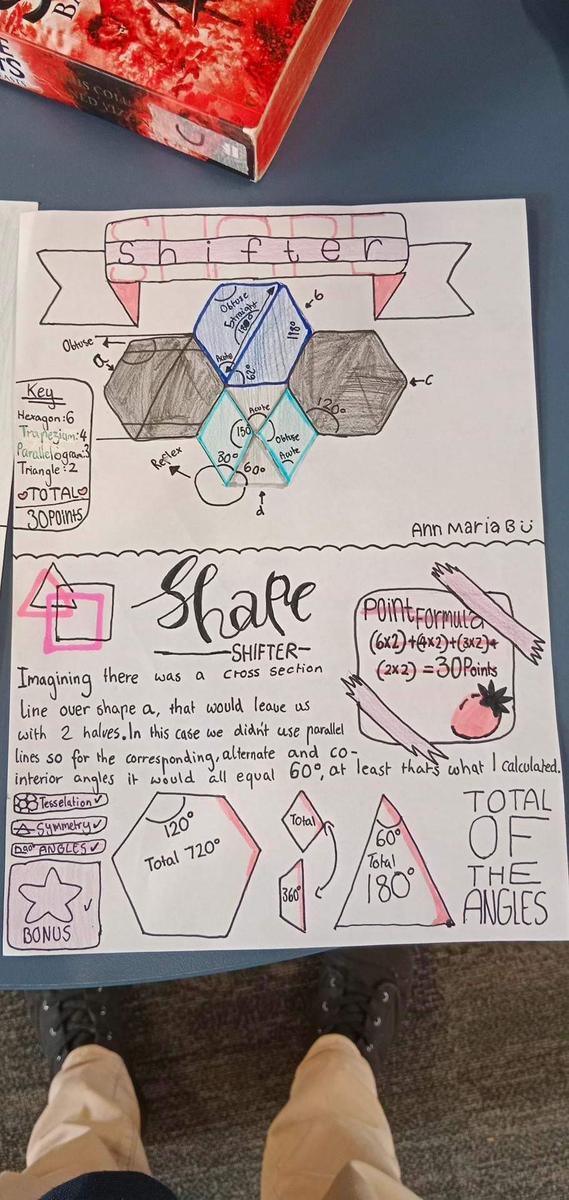 BA
E
TS
SHAPE
shifter
Obtuse
a
Obtuse
Straight
180°
Acute
62°
118°
b
c
120°
Key
Hexagon:6
Trapezium:4
Parallelogram:3
Triangle:2
TOTAL
30Points
Reflex
Acute
150
Obtuse
Acute
30°
60°
d
Ann Maria B Ü
Shape
SHIFTER
Point Formula
(6x2)+(4x2)+(3x2)+
(2x2) =30Points
Imagining there was a cross section
line over shape a, that would leave us
with 2 halves. In this case we didn't use parallel
lines so for the corresponding, alternate and co-
interior angles it would all equal 60°, at least that's what I calculated.
Tesselation ✓
Symmetry ✓
ANGLES ✓
BONUS ✓
120°
Total 720°
Total
360°
60°
Total
180°
TOTAL
OF
THE
ANGLES